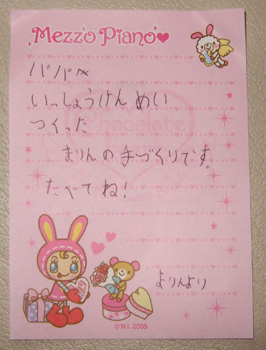 Mezzo Piano
ババへ
いっしょうけんめい
つくった
まりんの手づくりです。
たべてね!
よりんより
© N.I. 2005